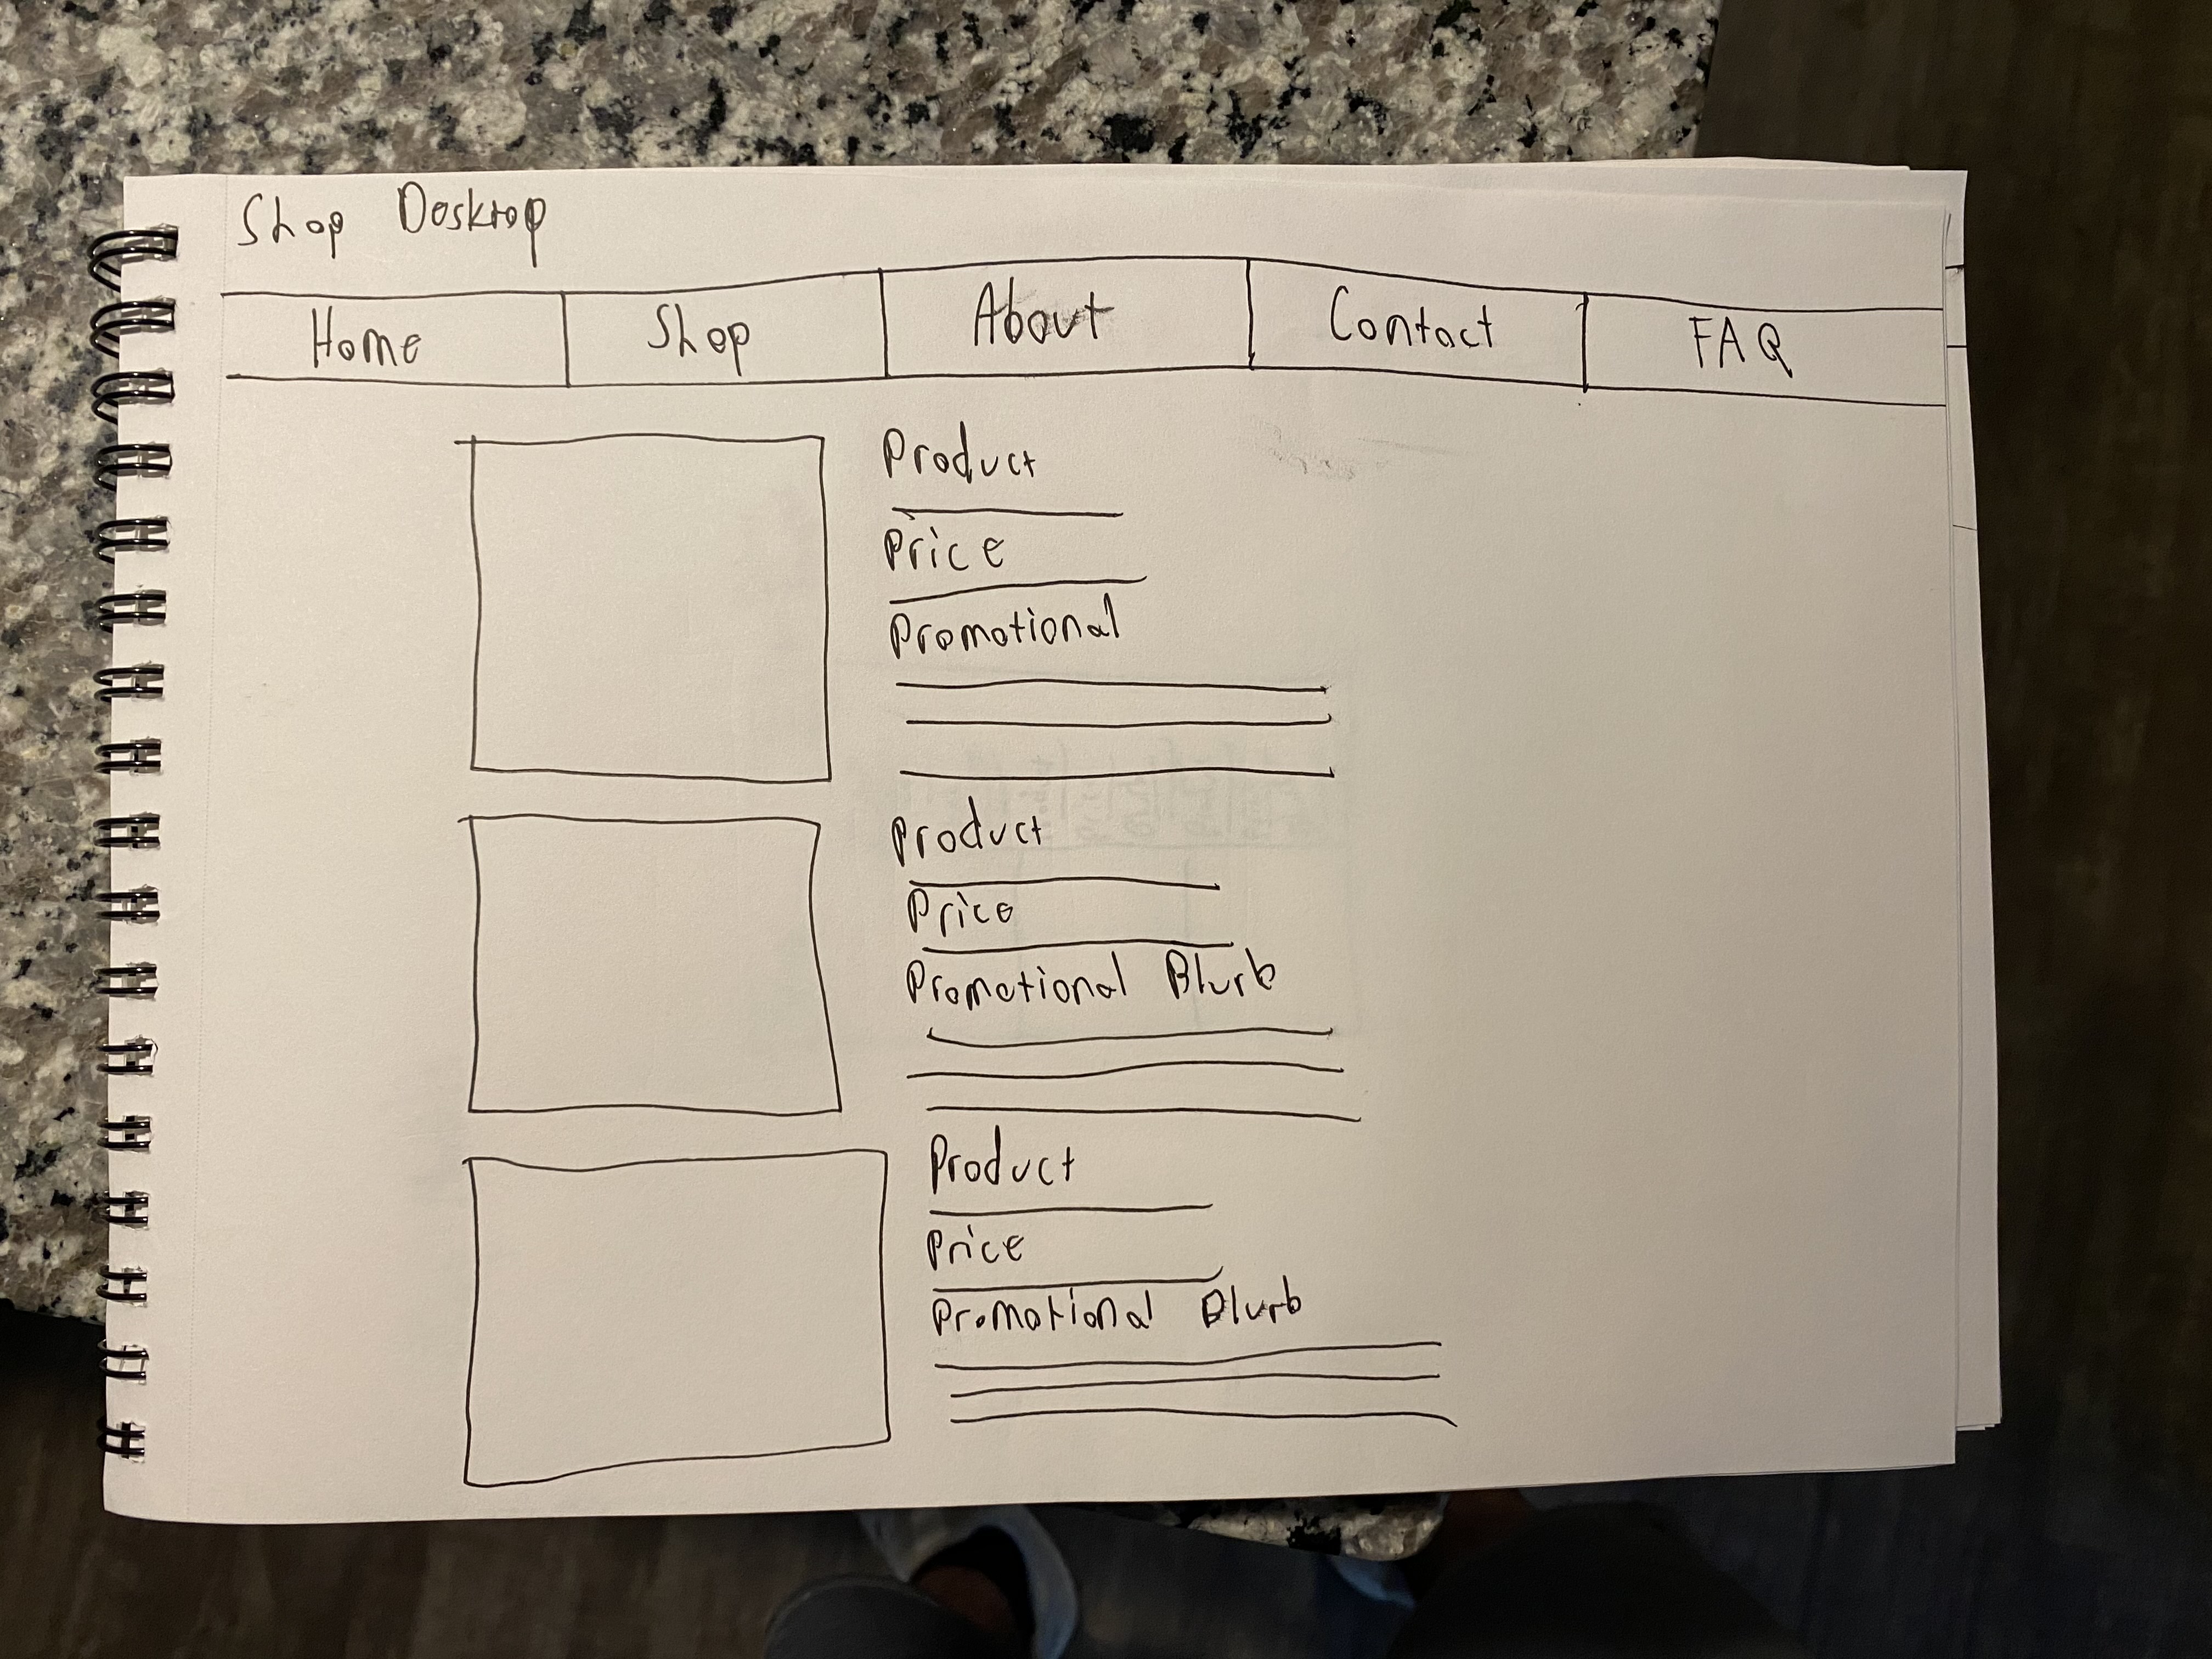 Shop Desktop
Home Shop About Contact FAQ
Product
Price
Promotional
Product
Price
Promotional Blurb
Product
Price
Promotional Blurb